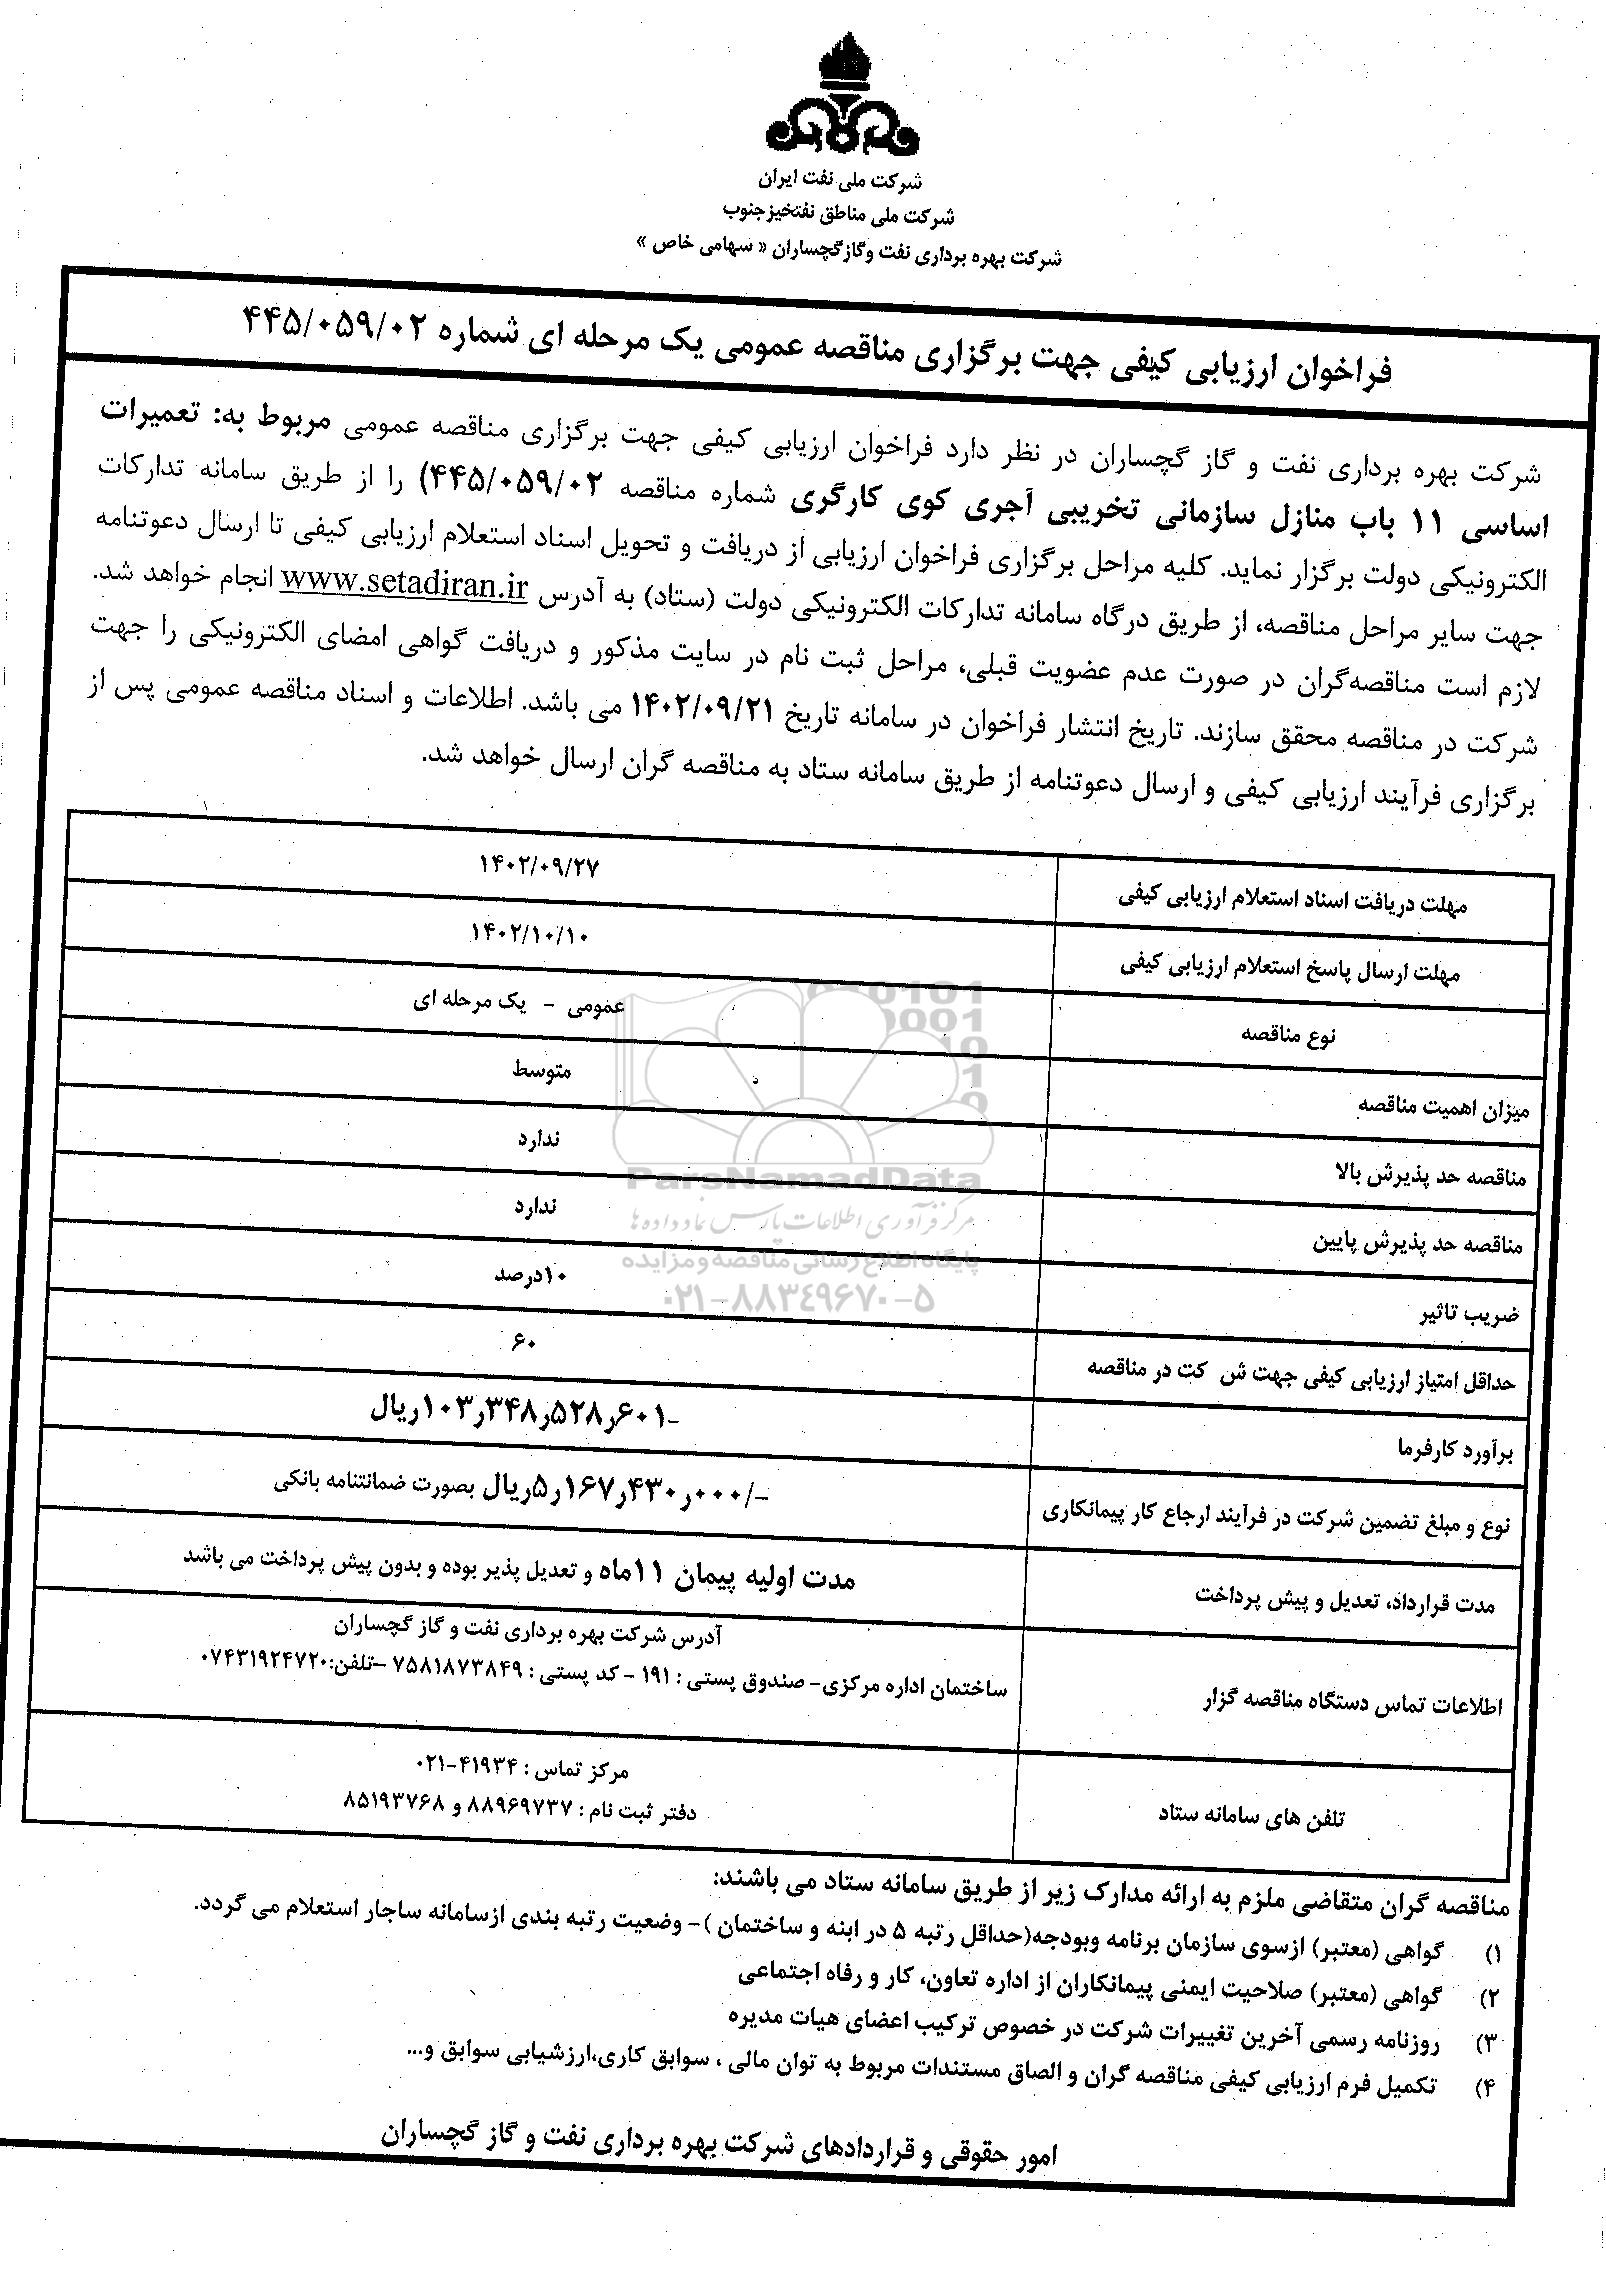 شرکت ملی نفت ایران
شرکت ملی مناطق نفتخیزجنوب
شرکت بهره برداری نفت وگازگچساران « سهامی خاص »
فراخوان ارزیابی کیفی جهت برگزاری مناقصه عمومی یک مرحله ای شماره ۴۴۵/۰۵۹/۰۲
شرکت بهره برداری نفت و گاز گچساران در نظر دارد فراخوان ارزیابی کیفی جهت برگزاری مناقصه عمومی مربوط به: تعمیرات
اساسی ۱۱ باب منازل سازمانی تخریبی آجری کوی کارگری شماره مناقصه ۴۴۵/۰۵۹/۰۲) را از طریق سامانه تدارکات
الکترونیکی دولت برگزار نماید. کلیه مراحل برگزاری فراخوان ارزیابی از دریافت و تحویل اسناد استعلام ارزیابی کیفی تا ارسال دعوتنامه
جهت سایر مراحل مناقصه، از طریق درگاه سامانه تدارکات الکترونیکی دولت (ستاد) به آدرس www.setadiran.ir انجام خواهد شد.
لازم است مناقصه‌گران در صورت عدم عضویت قبلی، مراحل ثبت نام در سایت مذکور و دریافت گواهی امضای الکترونیکی را جهت
شرکت در مناقصه محقق سازند. تاریخ انتشار فراخوان در سامانه تاریخ ۱۴۰۲/۰۹/۲۱ می باشد. اطلاعات و اسناد مناقصه عمومی پس از
برگزاری فرآیند ارزیابی کیفی و ارسال دعوتنامه از طریق سامانه ستاد به مناقصه گران ارسال خواهد شد.
مهلت دریافت اسناد استعلام ارزیابی کیفی ۱۴۰۲/۰۹/۲۷
مهلت ارسال پاسخ استعلام ارزیابی کیفی ۱۴۰۲/۱۰/۱۰
نوع مناقصه عمومی - یک مرحله ای
میزان اهمیت مناقصه متوسط
مناقصه حد پذیرش بالا ندارد
مناقصه حد پذیرش پایین ندارد
ضریب تاثیر ۱۰درصد
حداقل امتیاز ارزیابی کیفی جهت ش کت در مناقصه ۶۰
برآورد کارفرما -۱۰۳ر۳۴۸ر۵۲۸ر۶۰۱ریال
نوع و مبلغ تضمین شرکت در فرآیند ارجاع کار پیمانکاری -/۵ر۱۶۷ر۴۳۰ر۰۰۰ریال بصورت ضمانتنامه بانکی
مدت قرارداد، تعدیل و پیش پرداخت مدت اولیه پیمان ۱۱ماه و تعدیل پذیر بوده و بدون پیش پرداخت می باشد
اطلاعات تماس دستگاه مناقصه گزار
آدرس شرکت بهره برداری نفت و گاز گچساران
ساختمان اداره مرکزی- صندوق پستی : ۱۹۱ - کد پستی : ۷۵۸۱۸۷۳۸۴۹ -تلفن:۰۷۴۳۱۹۲۴۷۲۰
تلفن های سامانه ستاد
مرکز تماس : ۴۱۹۳۴-۰۲۱
دفتر ثبت نام : ۸۸۹۶۹۷۳۷ و ۸۵۱۹۳۷۶۸
مناقصه گران متقاضی ملزم به ارائه مدارک زیر از طریق سامانه ستاد می باشند:
۱) گواهی (معتبر) ازسوی سازمان برنامه وبودجه(حداقل رتبه ۵ در ابنه و ساختمان )- وضعیت رتبه بندی ازسامانه ساجار استعلام می گردد.
۲) گواهی (معتبر) صلاحیت ایمنی پیمانکاران از اداره تعاون، کار و رفاه اجتماعی
۳) روزنامه رسمی آخرین تغییرات شرکت در خصوص ترکیب اعضای هیات مدیره
۴) تکمیل فرم ارزیابی کیفی مناقصه گران و الصاق مستندات مربوط به توان مالی ، سوابق کاری،ارزشیابی سوابق و...
امور حقوقی و قراردادهای شرکت بهره برداری نفت و گاز گچساران
ParsNamadData
مرکز فرآوری اطلاعات پارس نماد داده ها
پایگاه اطلاع رسانی مناقصه و مزایده
۰۲۱-۸۸۳۴۹۶۷۰-۵